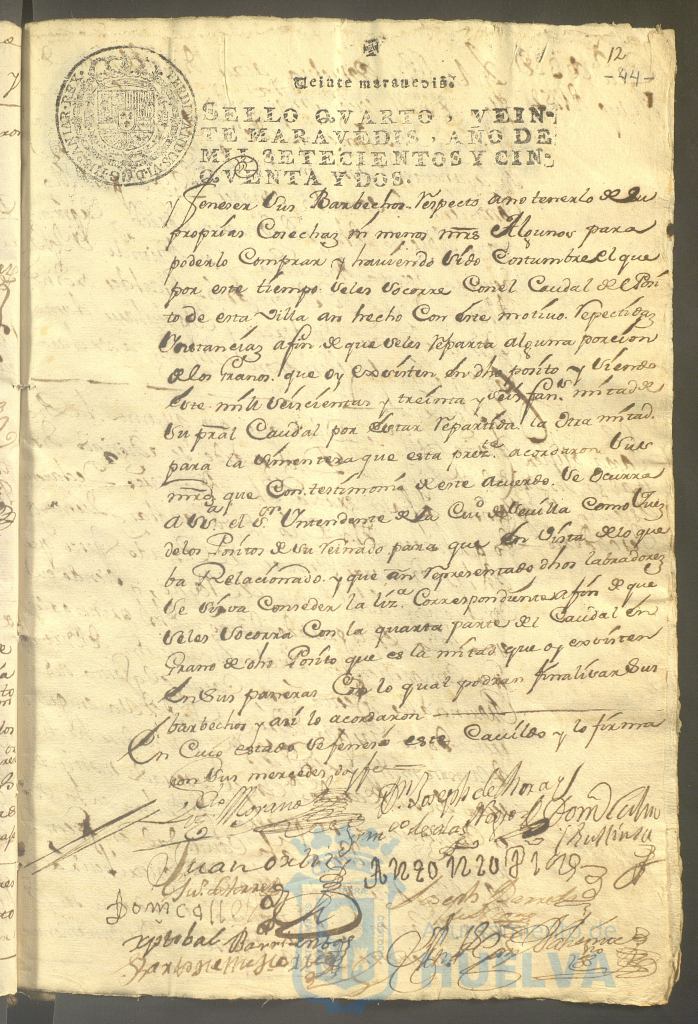 12
-44-
Veinte maravedis.
SELLO QVARTO, VEIN-
TE MARAVEDIS, AÑO DE
MIL SETECIENTOS Y CIN-
QVENTA Y DOS.
y feneser sus Barbechos respecto a no tenerlo de su
proprias Cosechas ni menos mrs Algunos para
poderlo Comprar y haviendo sido Costumbre el que
por este tiempo seles socorre Con el Caudal del Posi
to de esta Villa an hecho Con este motivo repectibas
Instancias afin de que seles reparta alguna porcion
de los Granos que oy existen en dho posito y siendo
este mill seiscientas y treinta y seis fans mitad de
su pral Caudal por estar repartida la otra mitad
para la simentera que esta preste acordaron sus
mrds que Con testimonio de este acuerdo se ocurra
a Sa el sor Intendente de la Ciud de Sevilla Como Juez
de los Positos de su reinado para que en vista de lo que
ba Relacionado y que an representado dhos labradores
se sirva Conseder la liza Correspondiente afin de que
seles socorra Con la quarta parte del Caudal en
Grano de dho Posito que es la mitad que oy existen
en sus paneras Con lo qual podran finalisar sus
barbechos y asi lo acordaron
En Cuio estado se feneció este Cavildo y lo firma
ron sus mercedes doy fee
Moreno Dn Joseph de
Juan ortiz
Joseph
Xptobal Barrientos
Ayuntamiento de
HUELVA